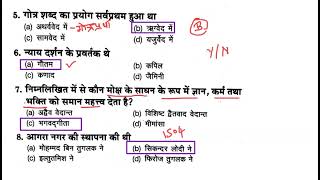 5. गोत्र शब्द का प्रयोग सर्वप्रथम हुआ था
(a) अथर्ववेद में (b) ऋग्वेद में B.
(c) सामवेद में (d) यजुर्वेद में
6. न्याय दर्शन के प्रवर्तक थे Y/N
(a) गौतम (b) कपिल
(c) कणाद (d) जैमिनी
7. निम्नलिखित में से कौन मोक्ष के साधन के रूप में ज्ञान, कर्म तथा
भक्ति को समान महत्त्व देता है?
(a) अद्वैत वेदान्त (b) विशिष्ट द्वैतवाद वेदान्त
(c) भगवद्गीता (d) मीमांसा
8. आगरा नगर की स्थापना की थी 1504
(a) मोहम्मद बिन तुगलक ने (b) सिकन्दर लोदी ने
(c) इल्तुतमिश ने (d) फिरोज तुगलक ने